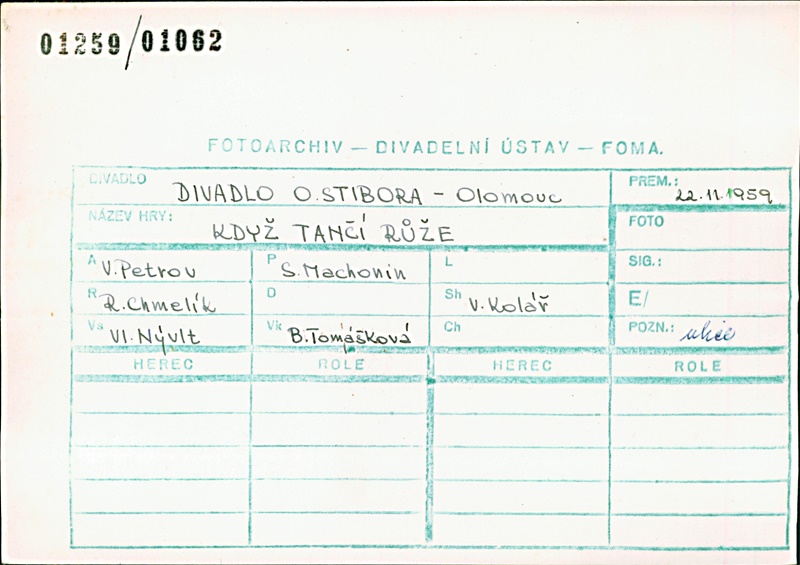 01259/01062
FOTOARCHIV — DIVADELNÍ ÚSTAV — FOMA.
DIVADLO DIVADLO O.STIBORA - Olomouc PREM.: 22.11.1959
NÁZEV HRY: KDYŽ TANČÍ RŮŽE FOTO
A V.Petrov P S.Machonin L SIG.:
R R.Chmelík D Sh V.Kolář E/
Vs Vl.Nývlt Vk B.Tomášková Ch POZN.: ulice
HEREC ROLE HEREC ROLE